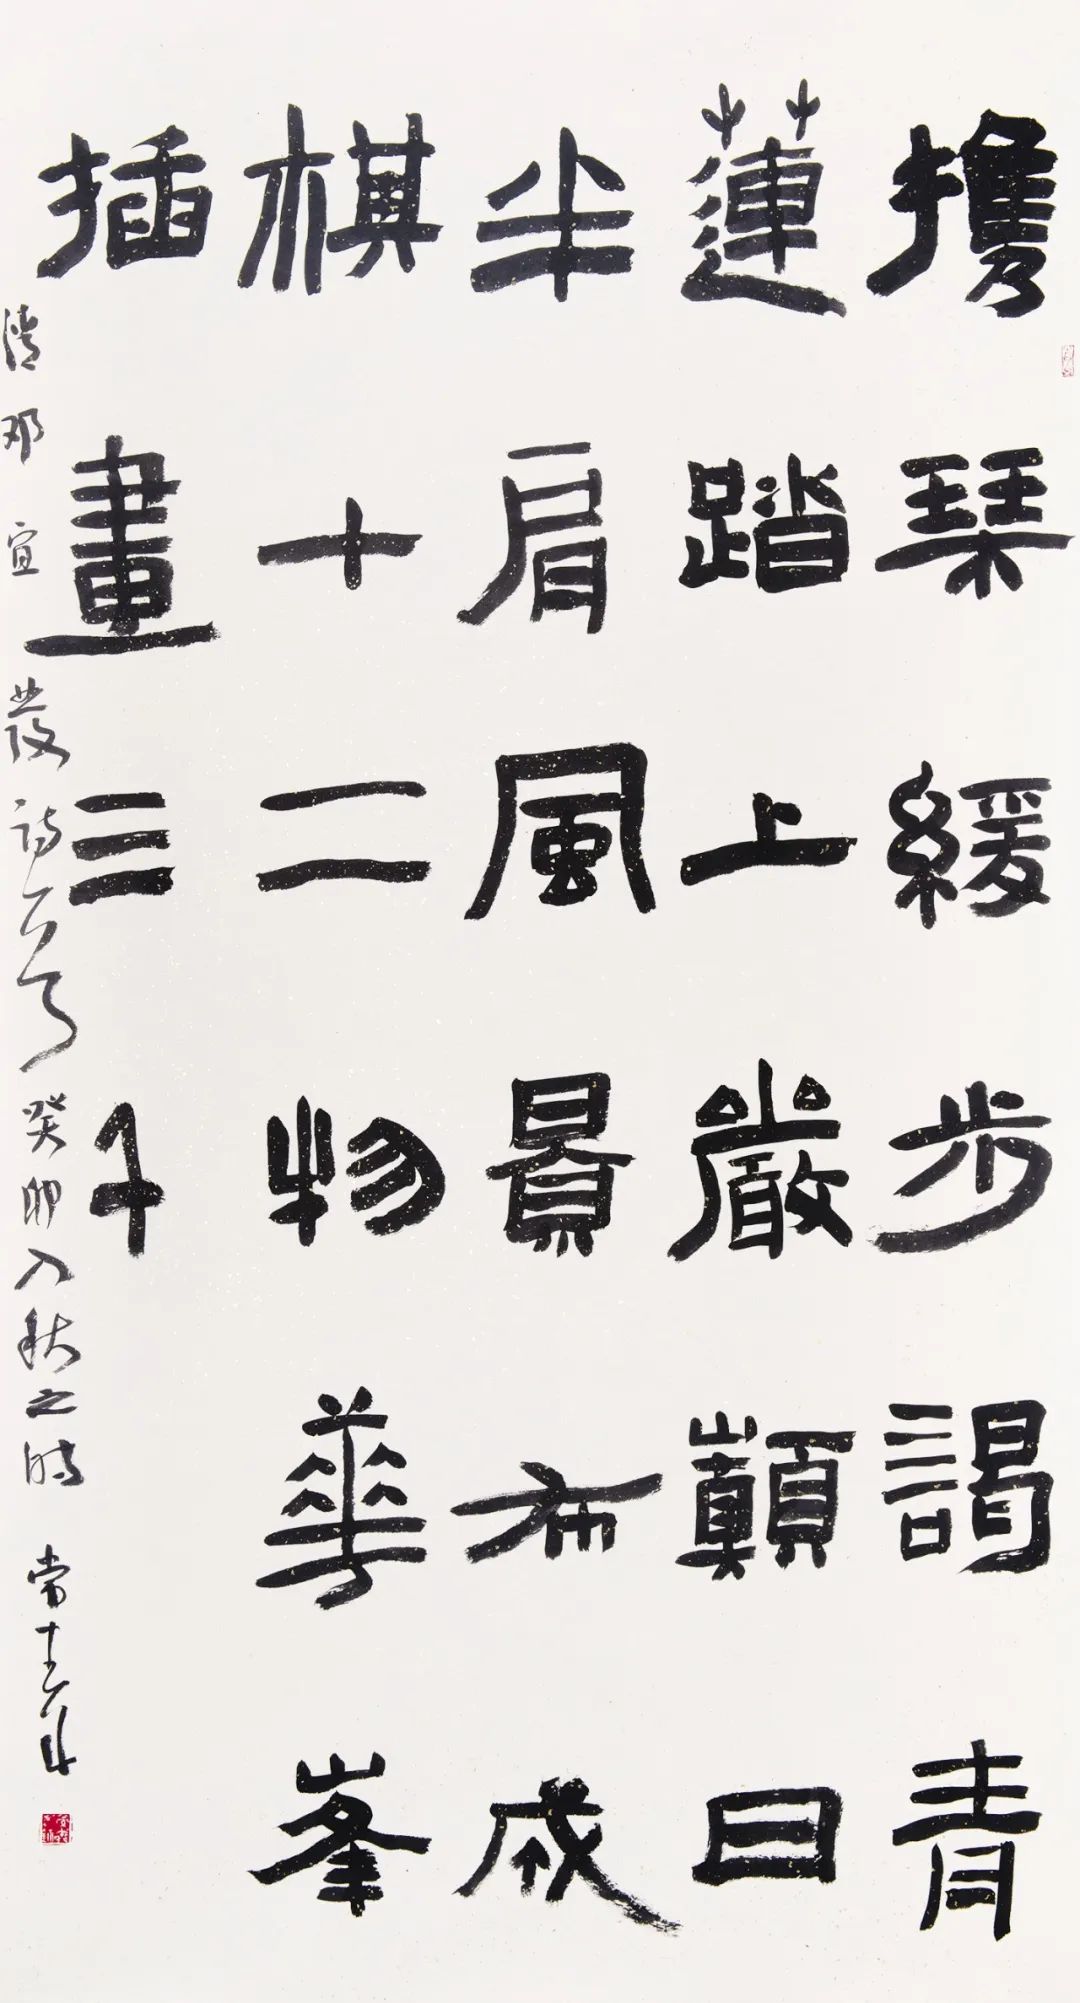 攜琴緩步謁青
蓮踏上巖巔日
半肩風景布成
棋十二物華峯
插畫三千
清邓宣發诗一首癸卯入秋之时